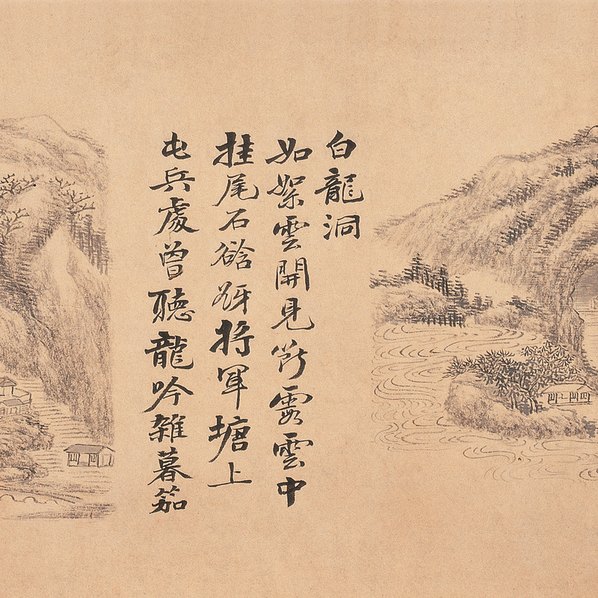 白龍洞
如絮雲開見霞雲中
挂尾石谽谺將軍塘上
屯兵處曾聽龍吟雜暮笳